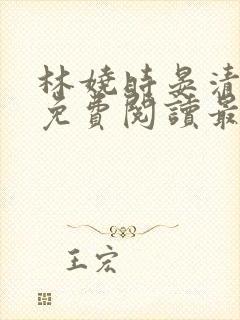 林嬈時晏清
免費閱讀最
王宏